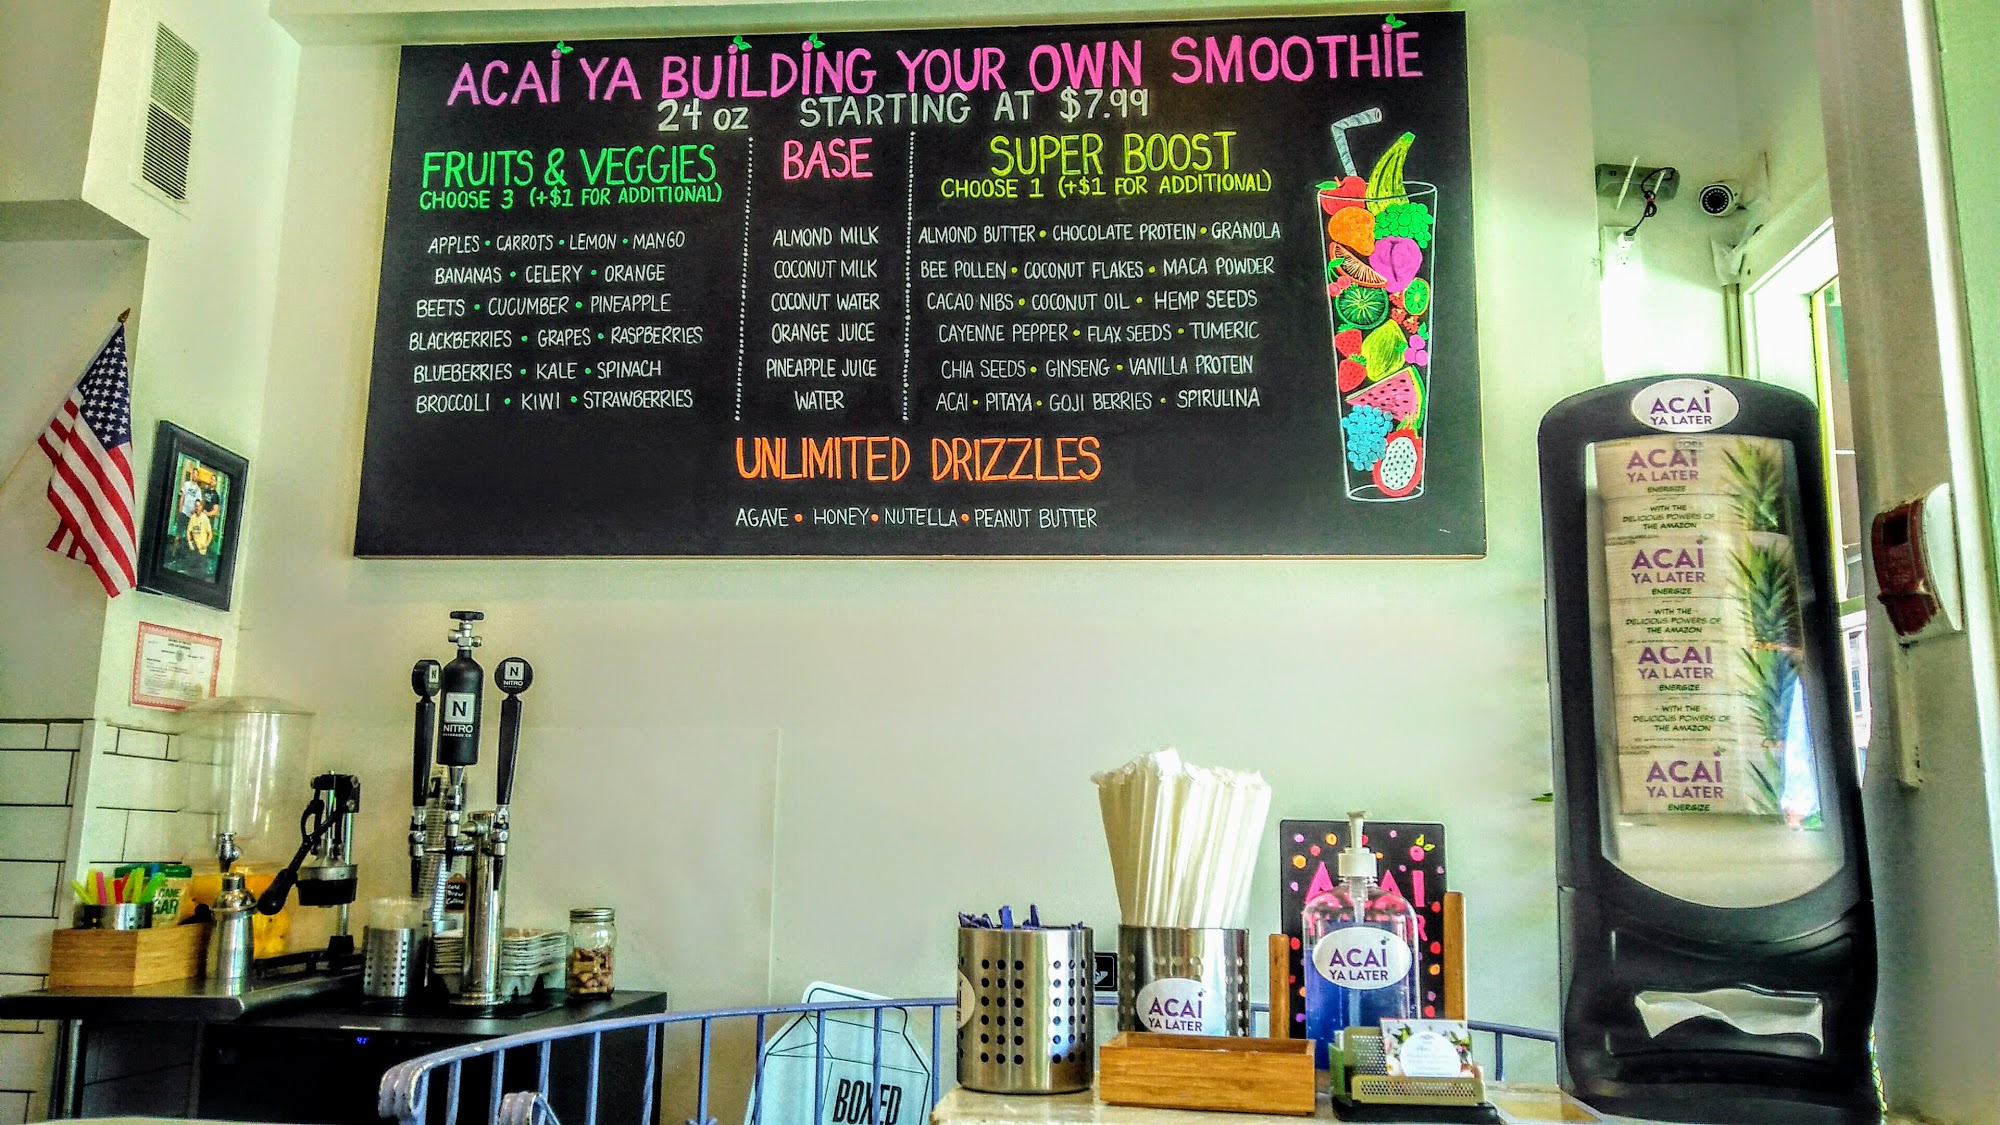 ACAI YA BUILDING YOUR OWN SMOOTHIE
24 oz STARTING AT $7.99
FRUITS & VEGGIES
CHOOSE 3 (+$1 FOR ADDITIONAL)
APPLES • CARROTS • LEMON • MANGO
BANANAS • CELERY • ORANGE
BEETS • CUCUMBER • PINEAPPLE
BLACKBERRIES • GRAPES • RASPBERRIES
BLUEBERRIES • KALE • SPINACH
BROCCOLI • KIWI • STRAWBERRIES
BASE
ALMOND MILK
COCONUT MILK
COCONUT WATER
ORANGE JUICE
PINEAPPLE JUICE
WATER
SUPER BOOST
CHOOSE 1 (+$1 FOR ADDITIONAL)
ALMOND BUTTER • CHOCOLATE PROTEIN • GRANOLA
BEE POLLEN • COCONUT FLAKES • MACA POWDER
CACAO NIBS • COCONUT OIL • HEMP SEEDS
CAYENNE PEPPER • FLAX SEEDS • TUMERIC
CHIA SEEDS • GINSENG • VANILLA PROTEIN
ACAI • PITAYA • GOJI BERRIES • SPIRULINA
UNLIMITED DRIZZLES
AGAVE • HONEY • NUTELLA • PEANUT BUTTER
ACAI
YA LATER
ACAI
YA LATER
ENERGIZE
- WITH THE -
DELICIOUS POWERS OF
THE AMAZON
ACAI
YA LATER
ENERGIZE
- WITH THE -
DELICIOUS POWERS OF
THE AMAZON
ACAI
YA LATER
ENERGIZE
- WITH THE -
DELICIOUS POWERS OF
THE AMAZON
ACAI
YA LATER
ENERGIZE
N
N
NITRO
N
NITRO
ACAI
YA LATER
ACAI
YA LATER
BOXED